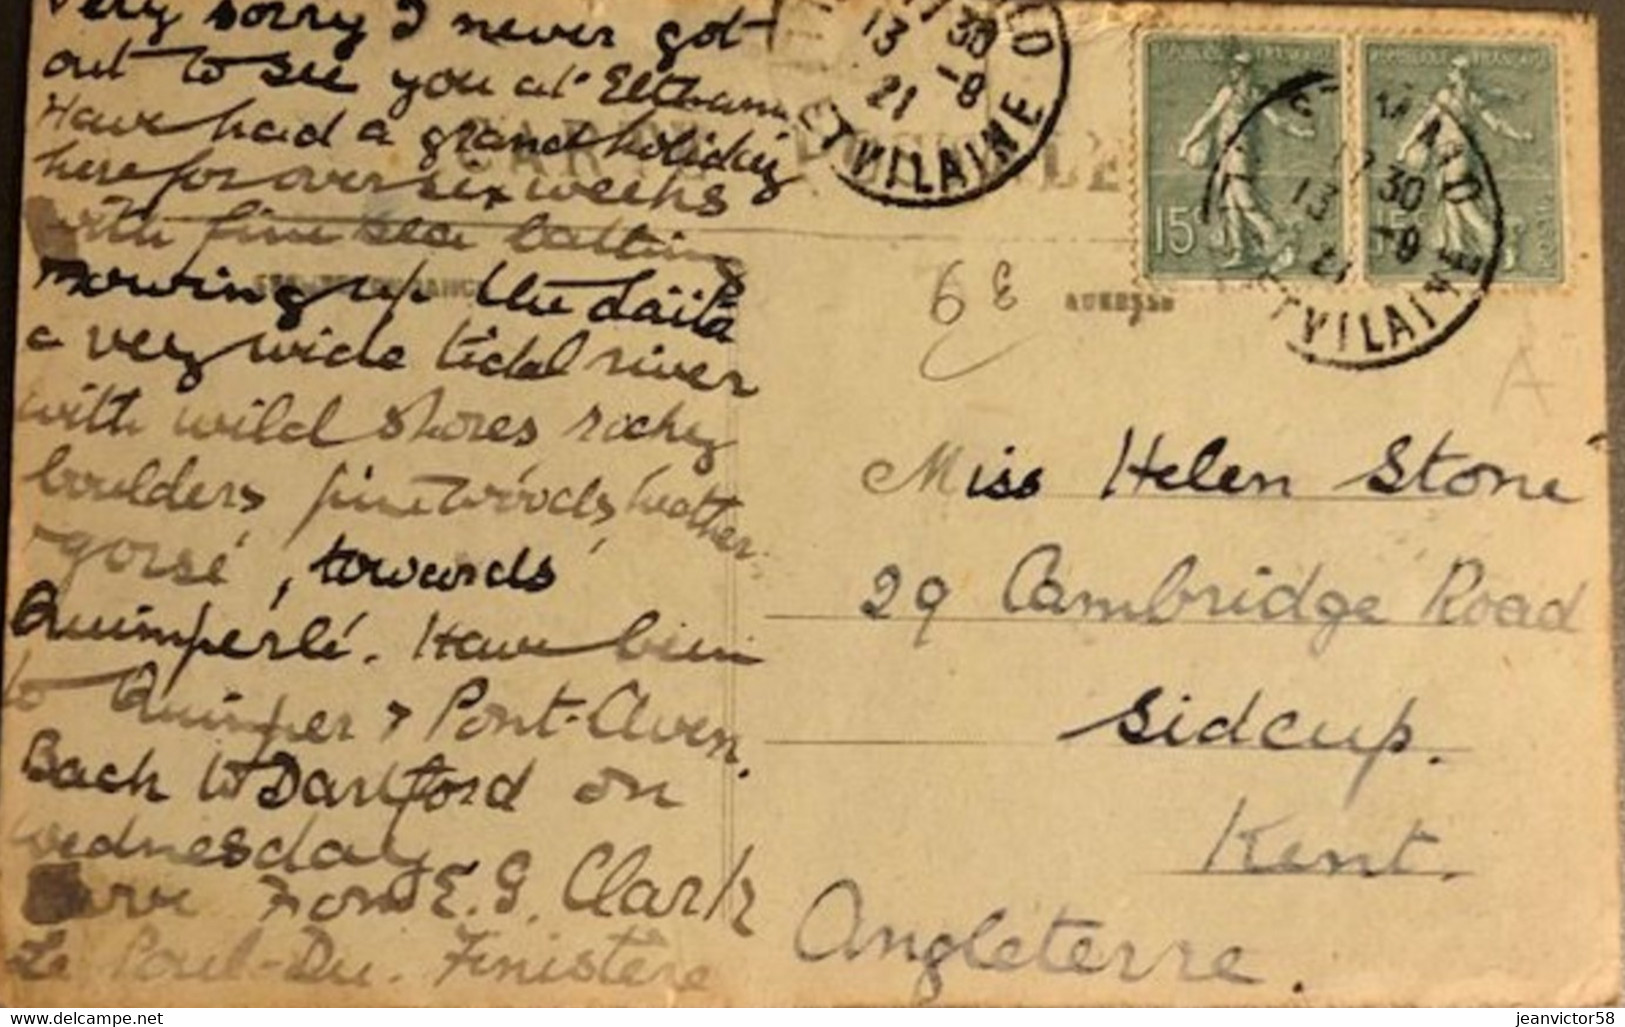 Very sorry I never got
out to see you at Eltham
Have had a grand holiday
here for over six weeks
with fine sea bathing
rowing up the Laïta
a very wide tidal river
with wild shores rocky
boulders pinewoods, heather
gorse, towards
Quimperlé. Have been
to Quimper & Pont-Aven.
Back to Dartford on
Wednesday
From E. G. Clark
Le Poul-Du. Finistère
CARTE POSTALE
CORRESPONDANCE
ADRESSE
13 17 30
21 -8
ET VILAINE
REPUBLIQUE FRANÇAISE
15
REPUBLIQUE FRANÇAISE
15
ST MALO
13 17 30
21 -8
ET VILAINE
6E
A
Miss Helen Stone
29 Cambridge Road
Sidcup.
Kent.
Angleterre.
www.delcampe.net
jeanvictor58